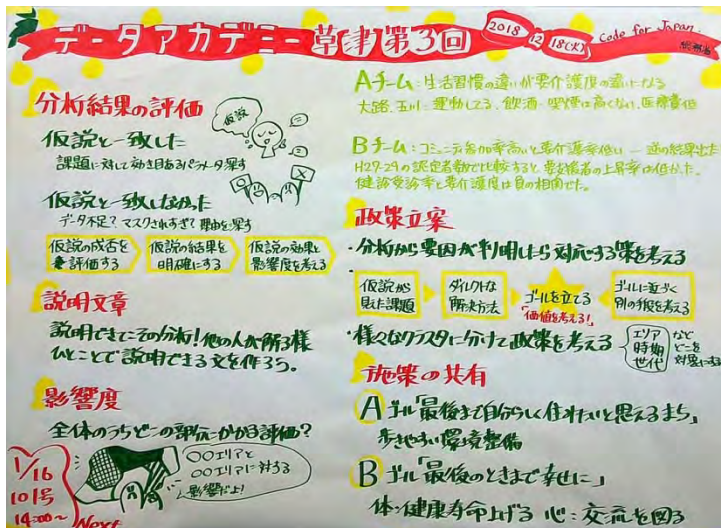 データアカデミー草津第3回
2018 12 18(火) Code for Japan.
総務省
分析結果の評価
仮説と一致した
課題に対して効き目あるパラメータ探す
仮説と一致しなかった
データ不足?マスクされすぎ?理由を探す
仮説
仮説の成否を
評価する
仮説の結果を
明確にする
仮説の効果と
影響度を考える
説明文章
説明できてこその分析!他の人が解る様
ひとことで説明できる文を作ろう。
影響度
全体のうちどの部分にかかる評価?
〇〇エリアと
〇〇エリアに対する
影響だよ!
1/16
101号
14:00~
Next
Aチーム:生活習慣の違いが要介護度の違いになる
大路、玉川:運動してる、飲酒・喫煙は高くない、医療費低
Bチーム:コミュニティ参加率高いと要介護率低い ― 逆の結果出た
H27-29の認定者数で比較すると要支援者の上昇率は低かった。
健診受診率と要介護度は負の相関でた。
政策立案
・分析から要因が判明したら対応する策を考える
仮説から
見えた課題
ダイレクトな
解決方法
ゴールを立てる
「価値を考える!」
ゴールに近づく
別の手段を考える
・様々なクラスタに分けて政策を考える
エリア
時期
世代
など
どこを
対象にする
施策の共有
A ゴール「最後まで自分らしく住みたいと思えるまち」
歩きやすい環境整備
B ゴール「最後のときまで幸せに」
体:健康寿命上げる 心:交流を図る